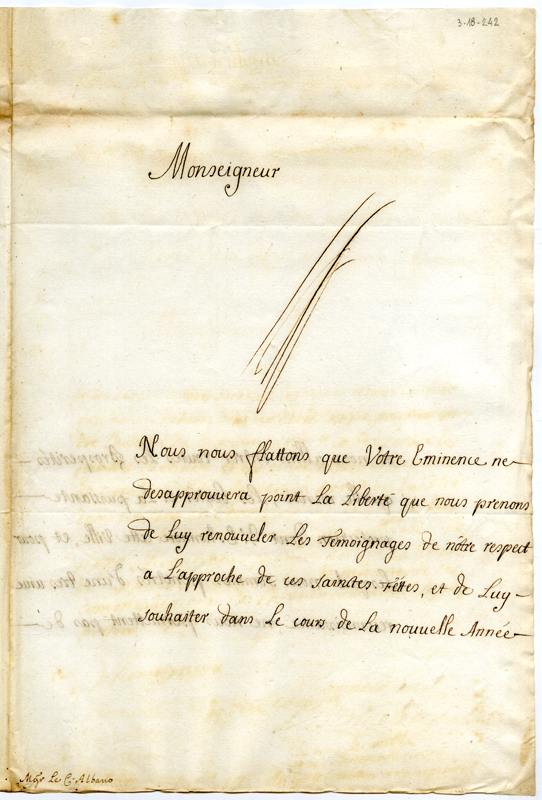 3-18-242
Monseigneur
Nous nous flattons que Votre Eminence ne
desapprouvera point La Liberté que nous prenons
de Luy renouveler Les Temoignages de nôtre respect
a L'approche de ces Sainctes Fêttes, et de Luy
souhaiter dans Le cours de La nouvelle Année
Mgr Le C. Albano